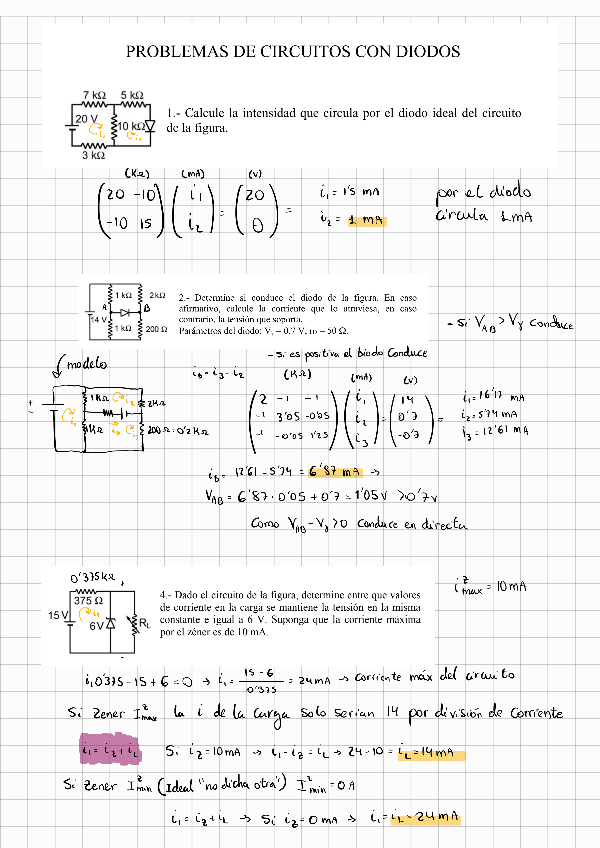 PROBLEMAS DE CIRCUITOS CON DIODOS
7 kΩ 5 kΩ
20 V
10 kΩ
i₁ i₂
3 kΩ
1.- Calcule la intensidad que circula por el diodo ideal del circuito
de la figura.
(KΩ) (mA) (V)
20 -10 i₁ 20
-10 15 i₂ = 0 =
i₁ = 1'5 mA
i₂ = 1 mA
por el diodo
circula 1mA
1 kΩ 2kΩ
A B
14 V
1 kΩ 200 Ω
2.- Determine si conduce el diodo de la figura. En caso
afirmativo, calcule la corriente que lo atraviesa, en caso
contrario, la tensión que soporta.
Parámetros del diodo: Vγ = 0.7 V, ro = 50 Ω.
- Si V_AB > Vγ conduce
- Si es positiva el biodo Conduce
modelo
1KΩ 2KΩ
1KΩ 200Ω = 0'2KΩ
i_D = i₃ - i₂
(KΩ) (mA) (V)
2 -1 -1 i₁ 14
-1 3'05 -0'05 i₂ = 0'7 =
-1 -0'05 1'25 i₃ -0'7
i₁ = 16'17 mA
i₂ = 5'74 mA
i₃ = 12'61 mA
i_D = 12'61 - 5'74 = 6'87 mA →
V_AB = 6'87 · 0'05 + 0'7 = 1'05 V > 0'7 V
Como V_AB - Vγ > 0 Conduce en directa
0'375KΩ
375 Ω
15 V
6V
R_L
4.- Dado el circuito de la figura, determine entre que valores
de corriente en la carga se mantiene la tensión en la misma
constante e igual a 6 V. Suponga que la corriente máxima
por el zéner es de 10 mA.
i^z max = 10 mA
i₁0'375 - 15 + 6 = 0 → i₁ = 15 - 6 / 0'375 = 24mA → corriente máx del circuito
Si Zener I^z max la i de la carga solo serian 14 por división de Corriente
i₁ = i_z + i_L Si i_z = 10mA → i₁ - i_z = i_L → 24 - 10 = i_L = 14mA
Si Zener I^z min (Ideal "no dicha otra") I^z min = 0 A
i₁ = i_z + i_L → Si i_z = 0 mA → i₁ = i_L = 24 mA